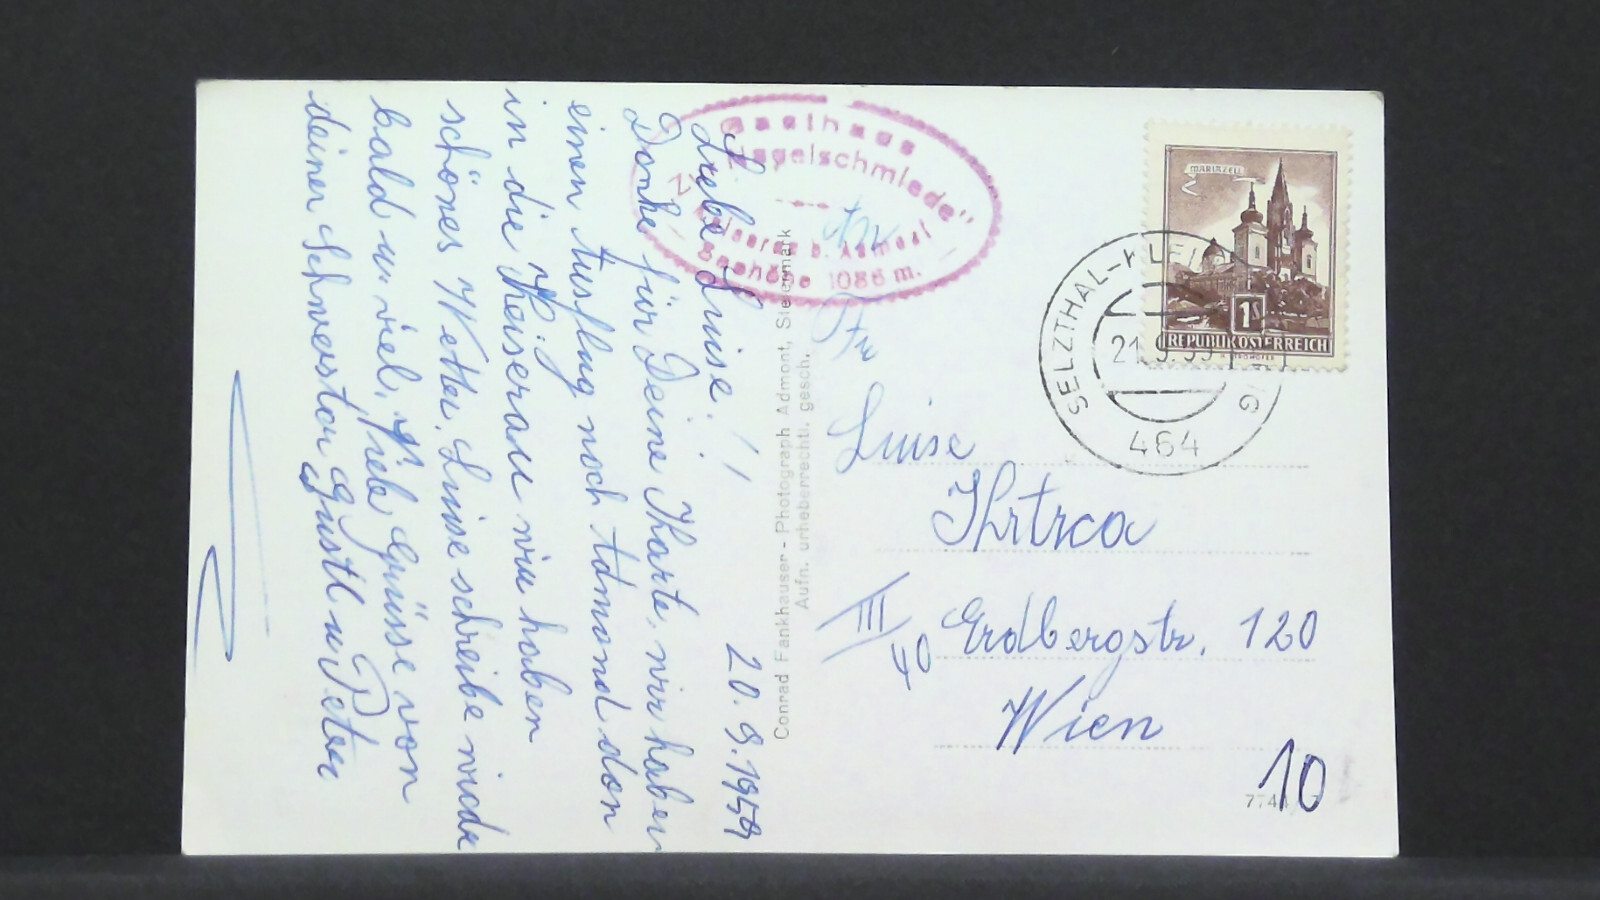 Gasthaus
"Nagelschmiede"
Kaiserau b. Admont
Seehöhe 1086 m.
Liebe Luise!
20.9.1959
Danke für Deine Karte, wir haben
einen Ausflug noch Admond dan
in die Keiserau wir haben
schönes Wetter. Luise schreibe wieder
bald u. viel, fiele Grüsse von
deiner Schwester Gustl u Peter
Conrad Fankhauser - Photograph Admont, Steiermark
Aufn. urheberrechtl. gesch.
MARIAZELL
1S
REPUBLIK ÖSTERREICH
SELZTHAL-
21.9.59
464
An
Luise
Krtrca
III
Erdbergstr. 120
Wien
10